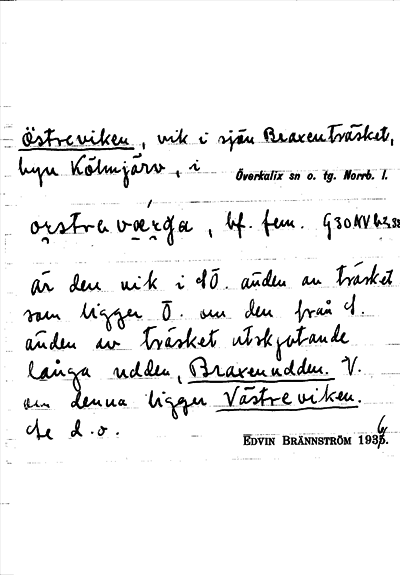 Östreviken, vik i sjön Braxenträsket,
byn Kölmjärv, i Överkalix sn o. tg. Norrb. l.
bf. fem.
är den vik i SÖ. änden av träsket
som ligger Ö. om den från S.
änden av träsket utskjutande
långa udden, Braxenudden. V.
om denna ligger Västreviken.
Se d. o.
EDVIN BRÄNNSTRÖM 1936.